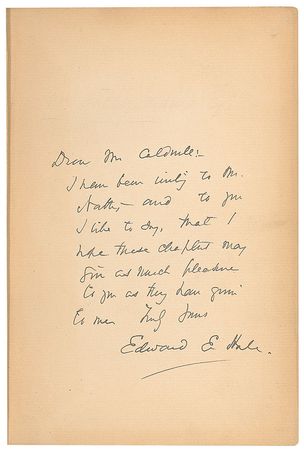 Dear Mr Caldwell:—
I have been writing to Mr.
and to you
I like to say, that I
hope these chapters may
give as much pleasure
to you as they have given
to me. Truly yours
Edward E. Hale.